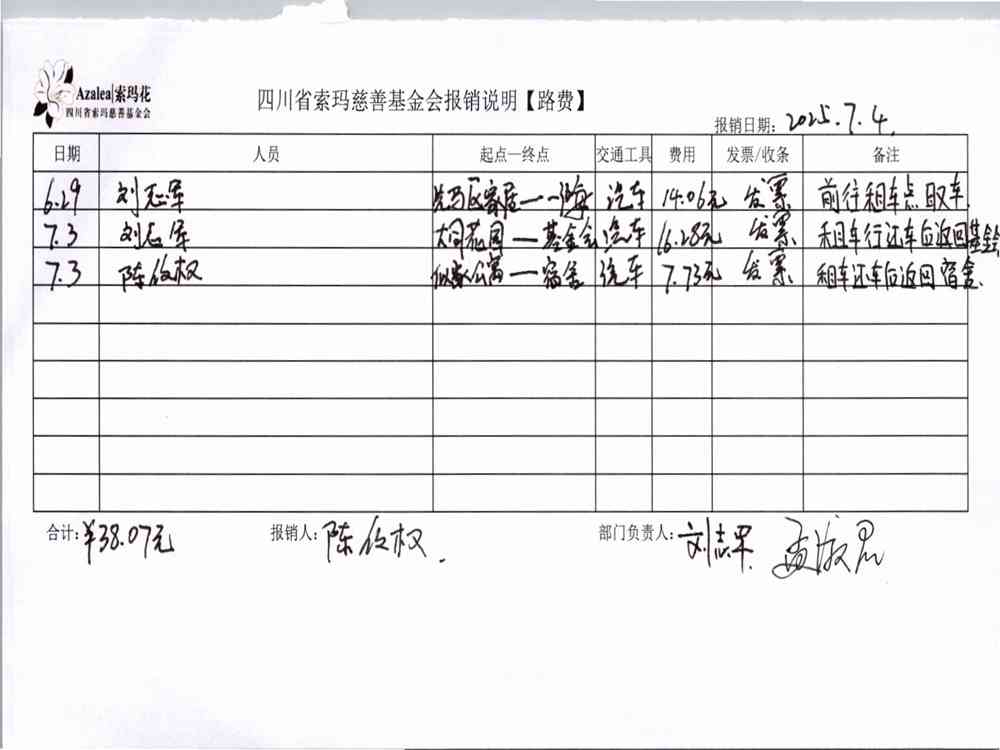 Azalea|索玛花
四川省索玛慈善基金会
四川省索玛慈善基金会报销说明【路费】
报销日期: 2025.7.4.
日期 人员 起点—终点 交通工具 费用 发票/收条 备注
6.29 刘志军 汽车 14.06元 发票 前往租车点取车.
7.3 刘志军 大同花园—基金会 汽车 16.28元 发票 租车行还车后返回基金会
7.3 陈 权 公寓—宿舍 汽车 7.73元 发票 租车还车后返回宿舍.
合计: ¥38.07元 报销人: 陈 权. 部门负责人: 刘志军.